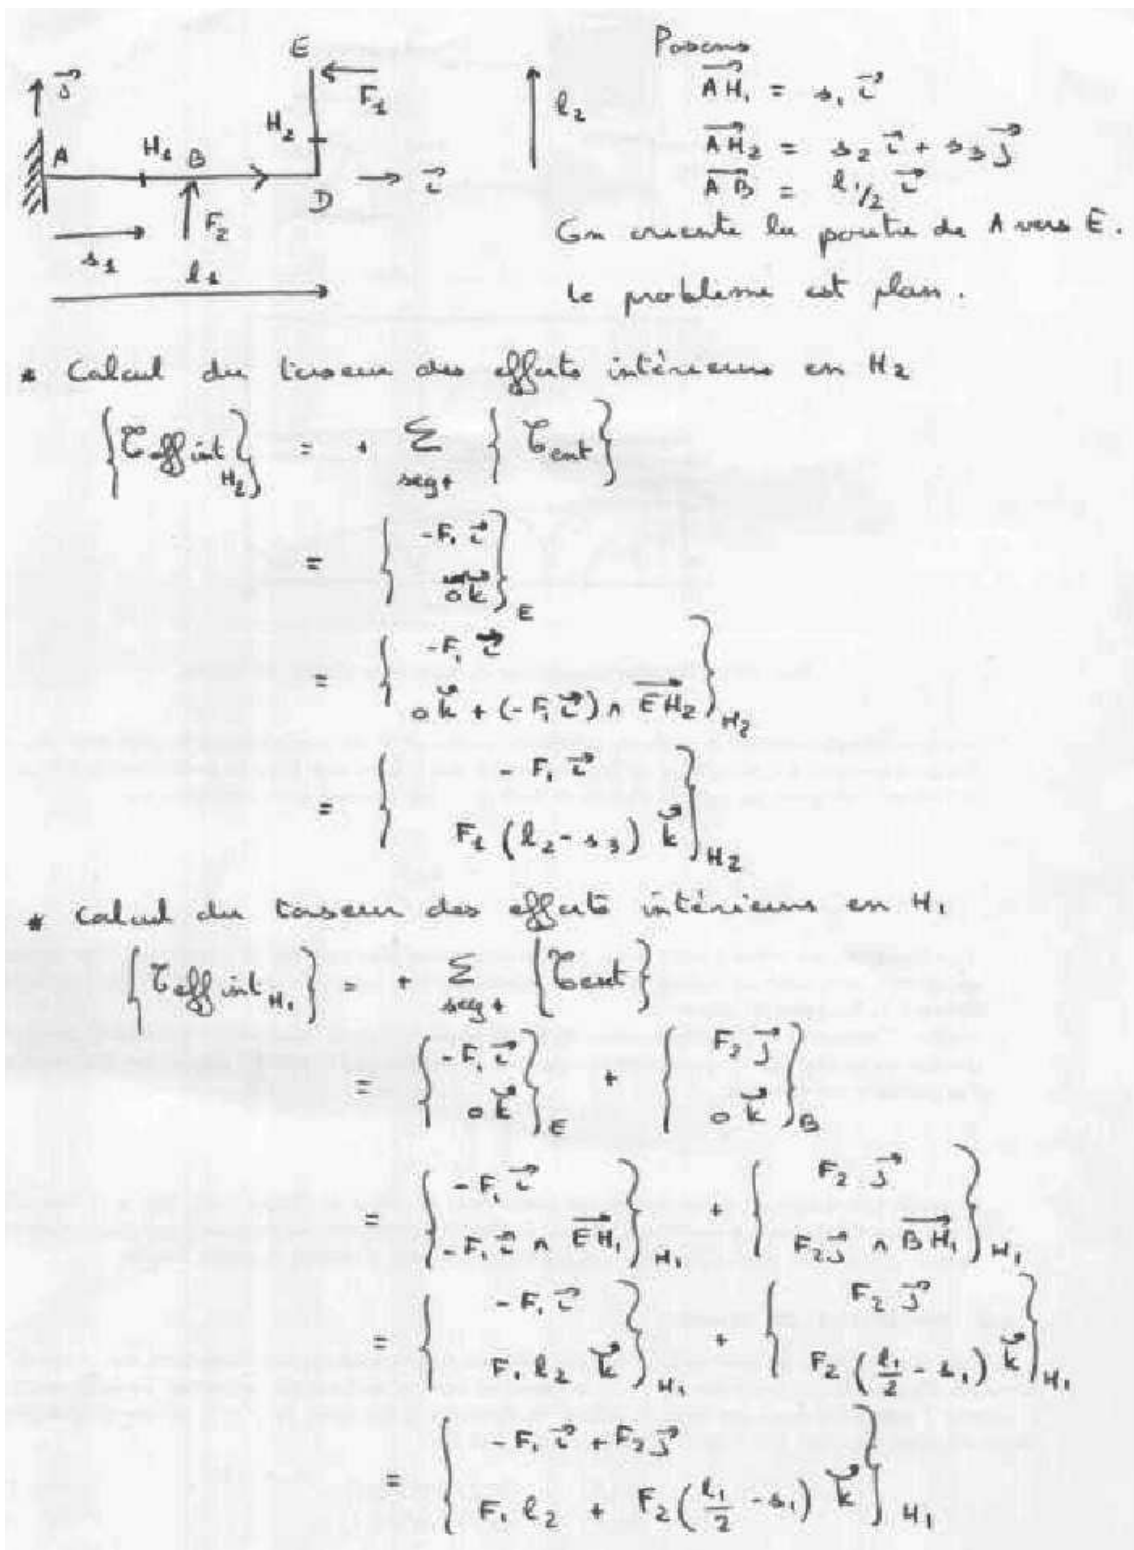 Posons
E
j⃗
F₁
l₂
AH₁ = s₁ i⃗
H₂
AH₂ = s₂ i⃗ + s₃ j⃗
A H₁ B
D i⃗
AB = l₁/2 i⃗
F₂
On oriente la poutre de A vers E.
s₁
l₁
Le problème est plan.
* Calcul du torseur des efforts intérieurs en H₂
{𝒯eff int H₂} = + Σ seg+ {𝒯ext}
= { -F₁ i⃗ ; 0 k⃗ }E
= { -F₁ i⃗ ; 0 k⃗ + (-F₁ i⃗) ∧ EH₂ }H₂
= { -F₁ i⃗ ; F₁ (l₂ - s₃) k⃗ }H₂
* Calcul du torseur des efforts intérieurs en H₁
{𝒯eff int H₁} = + Σ seg+ {𝒯ext}
= { -F₁ i⃗ ; 0 k⃗ }E + { F₂ j⃗ ; 0 k⃗ }B
= { -F₁ i⃗ ; -F₁ i⃗ ∧ EH₁ }H₁ + { F₂ j⃗ ; F₂ j⃗ ∧ BH₁ }H₁
= { -F₁ i⃗ ; F₁ l₂ k⃗ }H₁ + { F₂ j⃗ ; F₂ (l₁/2 - s₁) k⃗ }H₁
= { -F₁ i⃗ + F₂ j⃗ ; F₁ l₂ + F₂ (l₁/2 - s₁) k⃗ }H₁